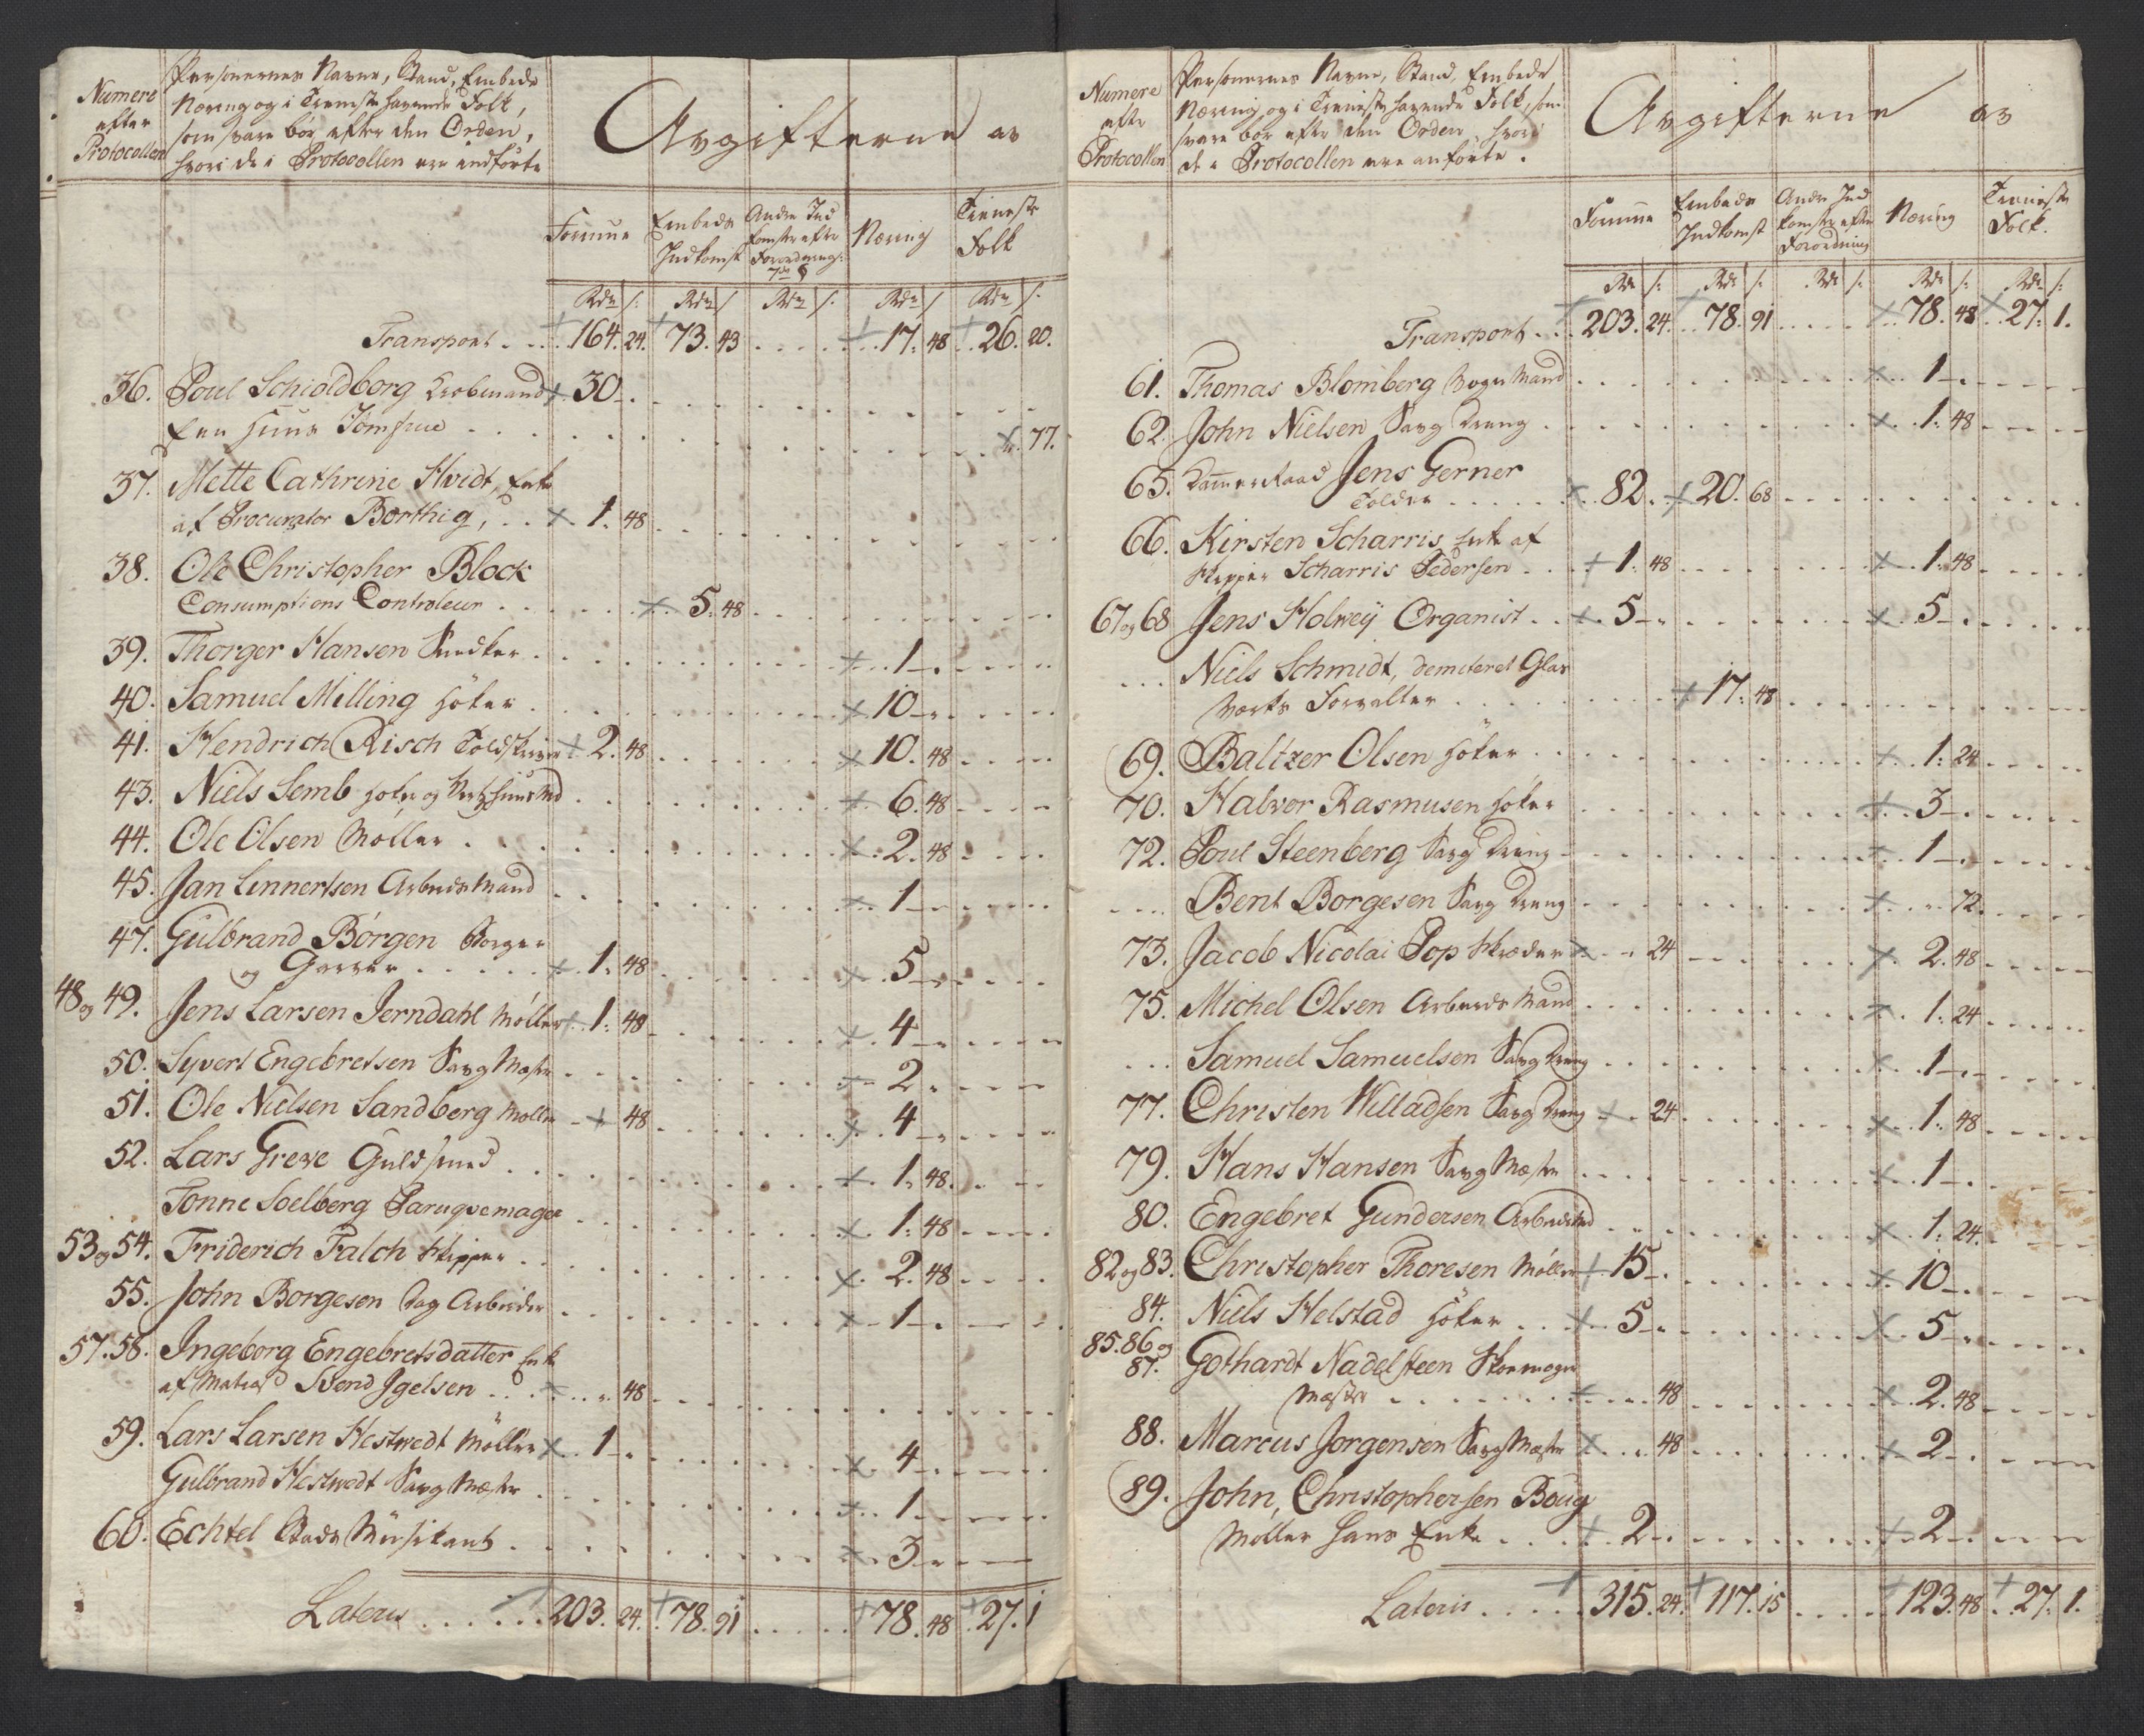 Numere
efter
Protocollen
Personernes Navne, Stand, Embede
Næring og i Tieneste havende Folk,
som svare bør efter den Orden,
hvori de i Protocollen ere indførte
Avgifterne av
Formue
Embeds
Indkomst
Andre Ind
komster efter
Forordnings
7de §
Næring
Tieneste
Folk
Rdr s. Rdr s Rdr s. Rdr s Rdr s.
Transport . . . 164. 24. 73. 43 . . . . 17. 48 . 26. 20.
36. Poul Schioldborg Kiøbmand 30 - .
Een Huus Jomfrue . . . 77.
37. Mette Cathrine Hvidt, Enke
af Procurator Borthig, . . 1. 48
38. Ole Christopher Block
Consumptions Controleur . . . 5. 48
39. Thorger Hansen Snedker . . . 1 -
40. Samuel Milling Höker . . . 10 -
41. Hendrich Risch Toldskriver 2. 48 . . . 10. 48
43. Niels Semb Höker og Vertshuusmd . . . 6. 48
44. Ole Olsen Møller . . . 2. 48
45. Jan Linnertsen Arbeidsmand . . . 1 -
47. Gulbrand Börgen Borger
og Garver . . . 1. 48 . . . 5 -
48 og 49. Jens Larsen Jerndahl Møller 1. 48 . . . 4 -
50. Syvert Engebretsen Saug Mester . . . 2 .
51. Ole Nielsen Sandberg Møller - 48 . . . 4 -
52. Lars Greve Guldsmed . . . 1. 48.
Tonne Soelberg Paruqvemager . . . 1. 48
53 og 54. Friderich Falch Skipper . . . 2. 48
55. John Borgesen Dag Arbeider . . . 1 - .
57. 58. Ingeborg Engebretsdatter Enke
af Matros Svend Igelsen . . . 48
59. Lars Larsen Hestvedt Møller 1 - . . . 4 -
Gulbrand Hestvedt Saug Mester . . . 1 -
60. Echtel Stads Musikant . . . 3 -
Lateris . . . . . 203. 24. 78. 91 . . . . . 78. 48 . 27. 1
Numere
efter
Protocollen
Personernes Navne, Stand, Embede
Næring, og i Tieneste havende Folk, som
svare bør efter den Orden, hvori
de i Protocollen ere anførte.
Avgifterne av
Formue
Embeds
Indkomst
Andre Ind
komster efter
Forordning
Næring
Tieneste
Folk.
Rdr s. Rdr s. Rdr s. Rdr s. Rdr s.
Transport . . 203. 24. 78. 91 . . . . 78. 48 . . 27. 1.
61. Thomas Blomberg Vogn Mand . . . 1 -
62. John Nielsen Saug Dreng . . . 1. 48
65. Kammer Raad Jens Gerner
Tolder . . . 82. 20. 68
66. Kirsten Scharris Enke af
Skipper Scharris Pedersen . . . 1. 48 . . . 1. 48
67 og 68 Jens Holweÿ Organist . . 5 - . . . 5 -
. . . Niels Schmidt, demiteret Glas
Værks Forvalter . . . 17. 48
69. Baltzer Olsen Höker . . . 1. 24
70. Halvor Rasmusen Höker . . . 3 -
72. Poul Steenberg Saug Dreng . . . 1 -
. . . Bent Borgesen Saug Dreng . . . 72.
73. Jacob Nicolai Pop Skræder . . 24 . . . 2. 48
75. Michel Olsen Arbeids Mand . . . 1. 24
. . . Samuel Samuelsen Saug Dreng . . . 1 -
77. Christen Willadsen Saug Dreng . 24 . . . 1. 48
79. Hans Hansen Saug Mester . . . 1 -
80. Engebret Gundersen Arbeidsmd . . . 1. 24.
82 og 83. Christopher Thoresen Møller 15 - . . . 10 -
84. Niels Helstad Höker . . . 5 - . . . 5 -
85. 86 og
87. Gothardt Nadelsteen Skoemager
Mester . . . 48 . . . 2. 48
88. Marcus Jorgensen Saug Mester . . . 48 . . . 2 -
89. John, Christophersen Boug
Møller Hans Enke . . . 2 - . . . 2 -
Lateris . . . . . 315. 24. 117. 15 . . . . 123. 48 . . 27. 1.